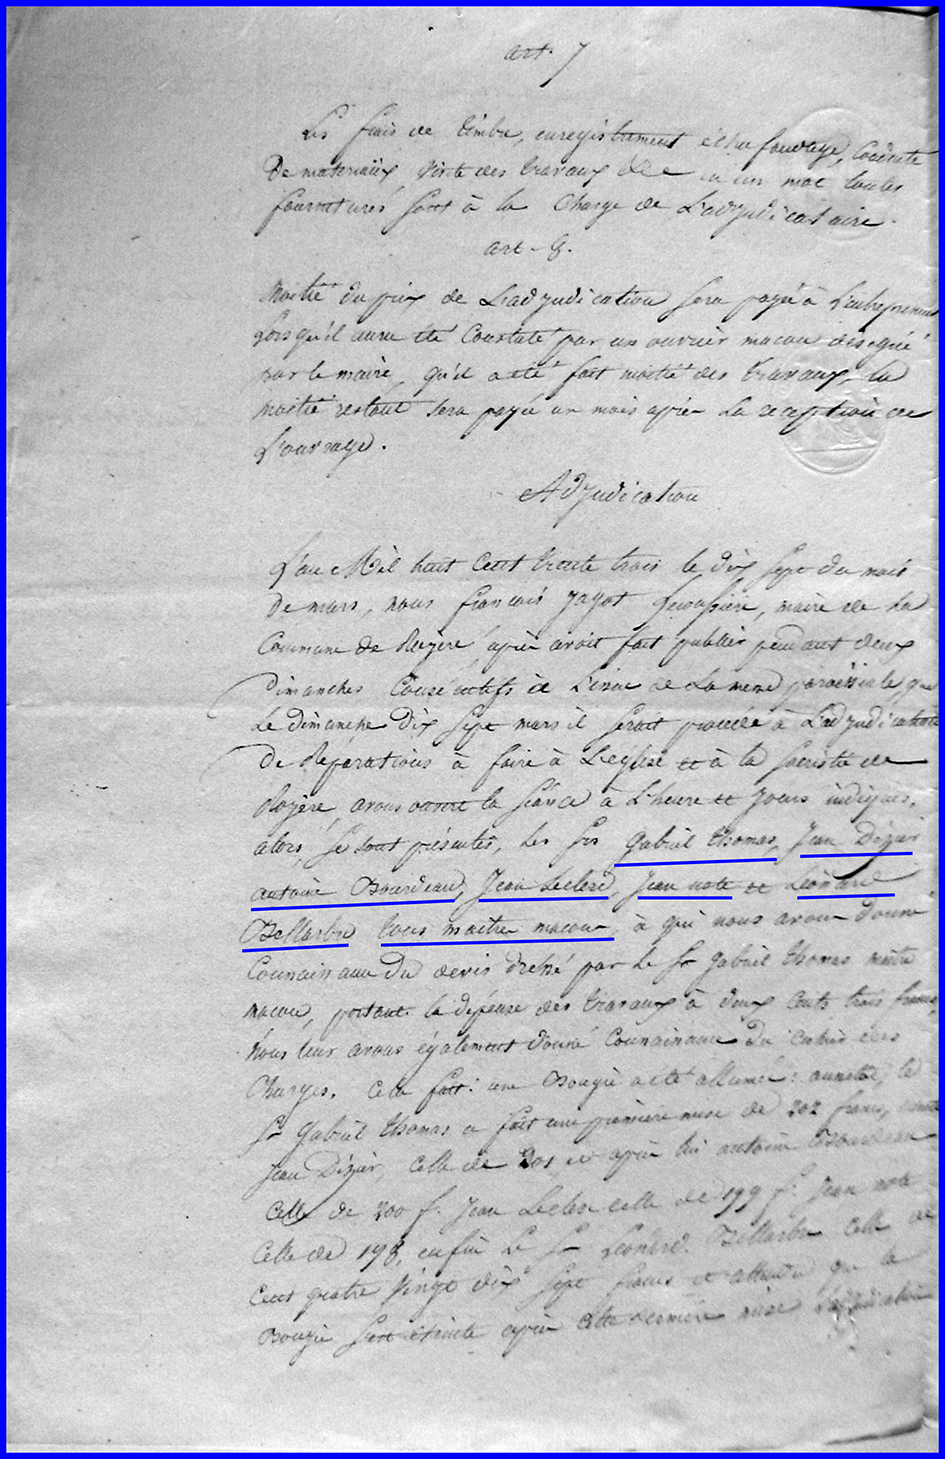 art. 7
Les frais de timbre, enregistrement échafaudage, Conduite
De materiaux, visite des travaux en un mot toutes
fournitures sont à la Charge de L'adjudicataire.
art. 8.
Moitié du prix de L'adjudication sera payé à L'entrepreneur
Lorsqu'il aura été Constaté par un ouvrier macon désigné
par le maire, qu'il a été fait moitié des travaux, la
moitié restant sera payée un mois après La reception de
L'ouvrage.
Adjudication
L'an Mil huit Cent trente trois le dix sept du mois
De mars, nous francois Jagot Lacoussiere, maire de La
Commune de Royere, après avoir fait publier pendant deux
Dimanches Consécutifs à L'issue de La messe paroissiale, que
Le dimanche Dix sept mars il serait procédé à L'adjudication
De Réparations à faire à L'église et à la sacristie de
Royère, avons ouvert la séance à L'heure et Jours indiqués,
alors, se sont présentés, les srs Gabriel Thomas, Jean Dizier,
antoine Bourdeau, Jean Leclerc, Jean note et Léonard
Bellarbre tous maitre macon, à qui nous avons donné
Connaissance Du devis dressé par Le sr Gabriel Thomas maitre
macon, portant la dépense des travaux à deux Cents trois francs,
Nous leur avons également donné Connaissance Du cahier des
Charges. Cela fait: une Bougie a été allumée: le
sr Gabriel Thomas a fait une première mise de 202 francs,
Jean Dizier, Celle de 201 et après lui antoine Bourdeau
Celle de 200 f. Jean Leclerc celle de 199 f. Jean note
Celle de 198, enfin Le sr Léonard Bellarbre Celle de
Cent quatre Vingt dix sept francs et attendu que la
Bougie s'est éteinte après cette dernière mise L'adjudication